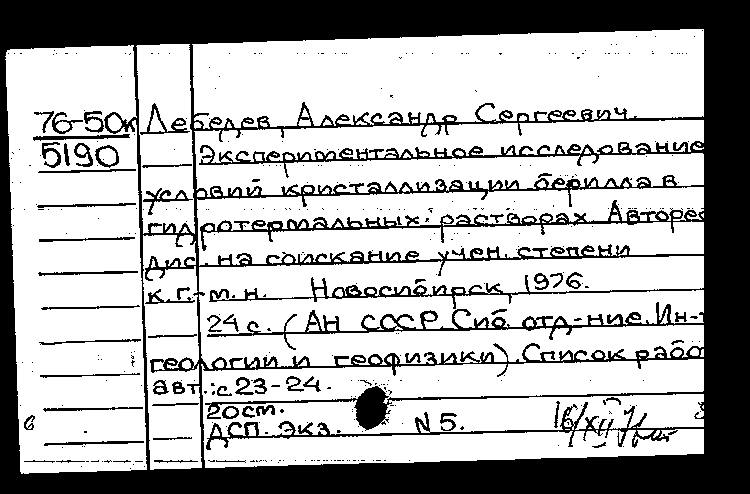 76-50к Лебедев, Александр Сергеевич.
5190 Экспериментальное исследование
условий кристаллизации берилла в
гидротермальных растворах Авторе
дис. на соискание учен. степени
к.г.-м.н. Новосибирск, 1976.
24 с. (АН СССР. Сиб. отд-ние. Ин-т
геологии и геофизики). Список рабо
авт.: с 23-24.
20 см.
ДСП. Экз. N 5. 16/XII